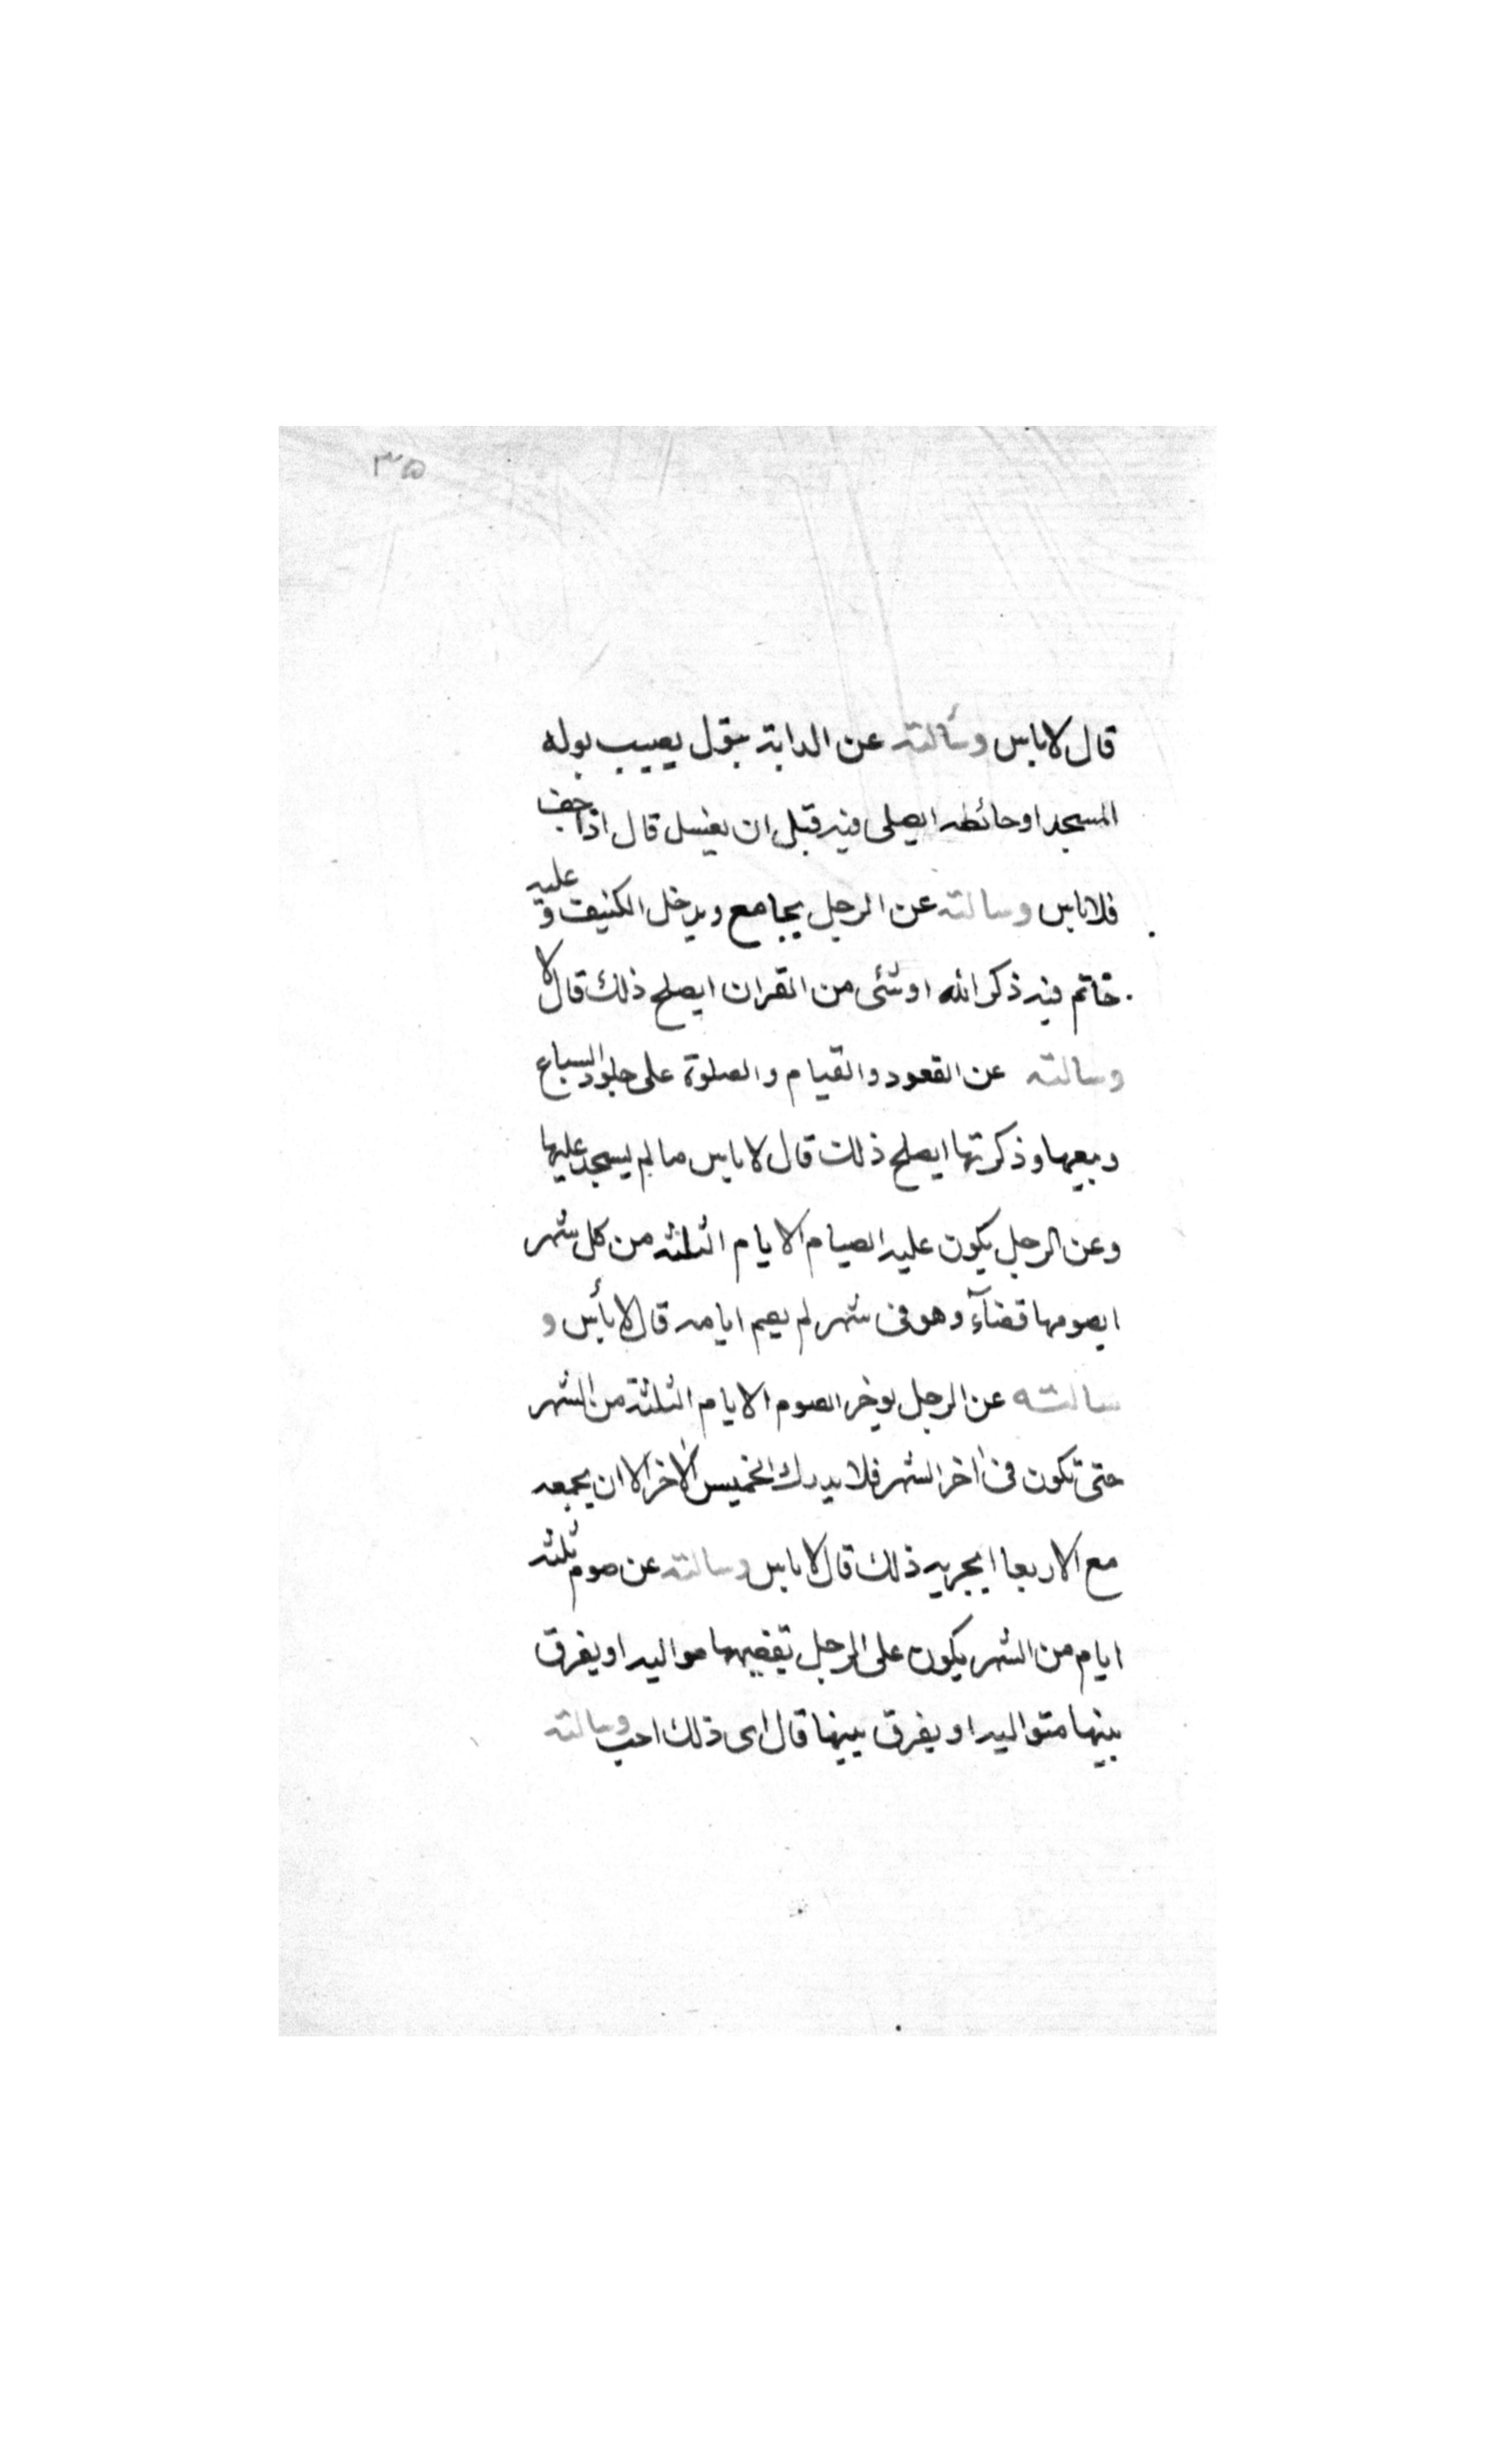 ٣٥
قال لا باس وسألته عن الدابة تبول يصيب بوله
المسجد او حائطه ايصلى فيه قبل ان يغسل قال اذا جف
فلا باس وسالته عن الرجل يجامع ويدخل الكنيف و عليه
خاتم فيه ذكر الله او شئ من القران ايصلح ذلك قال لا
وسالته عن القعود والقيام والصلوة على جلود السباع
وبيعها وذكرتها ايصلح ذلك قال لا باس مالم يسجد عليها
وعن الرجل يكون عليه الصيام الايام الثلثه من كل شهر
ايصومها قضآء وهو فى شهر لم يصم ايامه قال لا بأس و
سالته عن الرجل يوخر الصوم الايام الثلثة من الشهر
حتى تكون فى اخر الشهر فلا يدرك الخميس الاخر الا ان يجمعه
مع الاربعا ايجزيه ذلك قال لا باس وسالته عن صوم ثلثه
ايام من الشهر يكون على الرجل تقضيها مواليه او يفرق
بينها متواليه او يفرق بينها قال اى ذلك احب وسالته